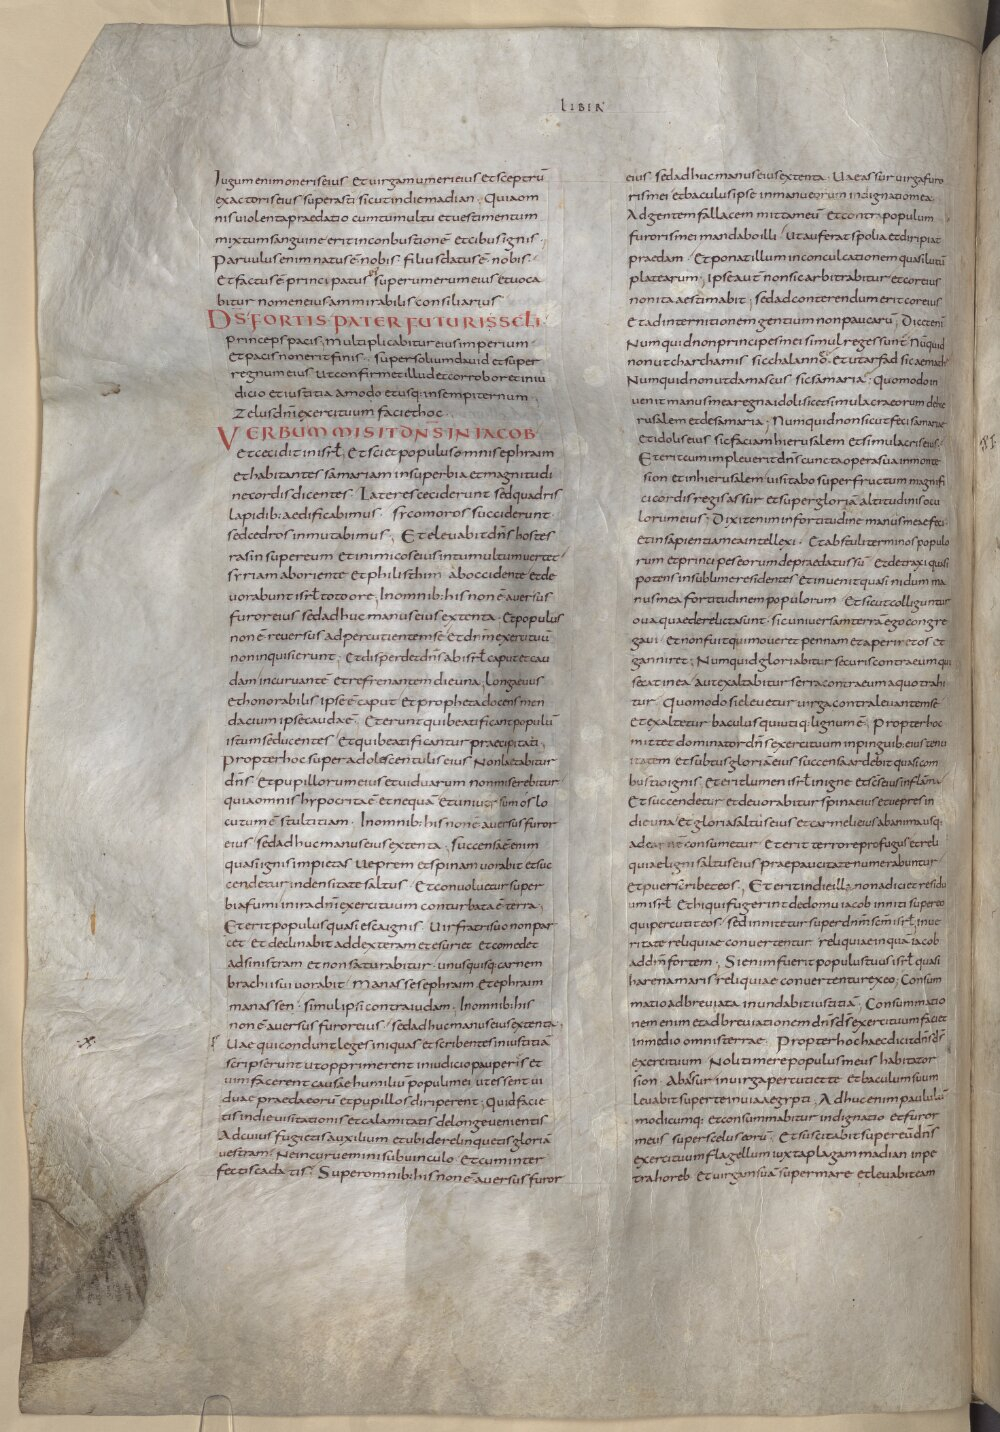 LIBER
Iugum enim oneris eius et virgam umeri eius et sceptrū
exactoris eius superasti sicut in die madian. Quia om
nis violenta praedatio cum tumultu et vestimentum
mixtum sanguine erit in conbustionē et cibus ignis.
Parvulus enim natus ē nobis. filius datus ē nobis.
Et factus ē principatus eī super umerum eius et voca
bitur nomen eius ammirabilis consiliarius
D̄S FORTIS PATER FUTURI SSĒLI.
princeps pacis; multiplicabitur eius imperium
Et pacis non erit finis. super solium david et super
regnum eius ut confirmet illud et corroboret in iu
dicio et iustitia amodo et usq; in sempiternum.
Zelus dn̄i exercituum faciet hoc.
VERBUM MISIT DN̄S IN IACOB
Et cecidit in isrƚ. Et sciet populus omnis ephraim
et habitantes samariam in superbia et magnitudi
ne cordis dicentes. Lateres ceciderunt sed quadris
lapidib; aedificabimus. sycomoros succiderunt.
sed cedros inmutabimus; Et elevabit dn̄s hostes
rasin super eum et inimicos eius in tumultum vertet
syriam ab oriente et philisthim ab occidente et de
vorabunt isrƚ toto ore; In omnib; his non ē aversus
furor eius sed adhuc manus eius extenta. Et populus
non ē reversus ad percutientem se et dn̄m exercituū
non inquisierunt; Et disperdet dn̄s ab isrƚ caput et cau
dam incurvantē et refrenantem die una. longaevus
et honorabilis ipse ē caput et propheta docens men
dacium ipse cauda ē. Et erunt qui beatificant populū
istum seducentes et qui beatificantur praecipitati;
Propter hoc super adolescentulis eius non laetabitur
dn̄s et pupillorum eius et viduarum non miserebitur
quia omnis hypocrita ē et nequā et universum os lo
cutum ē stultitiam. In omnib; his non ē aversus furor
eius sed adhuc manus eius extenta. succensa ē enim
quasi ignis impietas veprem et spinam vorabit et suc
cendetur in densitate saltus et convolvetur super
bia fumi in ira dn̄i exercituum conturbata ē terra;
Et erit populus quasi esca ignis. vir fratri suo non par
cet et declinabit ad dexteram et esuriet et comedet
ad sinistram et non saturabitur. unusquisq; carnem
brachii sui vorabit. Manasses ephraim et ephraim
manassen. simul ipsi contra iudam. In omnib; his
non ē aversus furor eius sed adhuc manus eius extenta;
Vae qui condunt leges iniquas et scribentes iniustitiā
scripserunt ut opprimerent in iudicio pauperis et
vim facerent causae humiliū populi mei ut essent vi
duae praeda eorū et pupillos diriperent; Quid facie
tis in die visitationis et calamitatis de longe venientis
Ad cuius fugietis auxilium et ubi derelinquetis gloriā
vestram. Ne incurvemini sub vinculo et cum inter
fectis cadatis. Super omnib; his non ē aversus furor
eius sed adhuc manus eius extenta. Vae assur virga furo
ris mei et baculus ipse in manu eorum indignatio mea.
Ad gentem fallacem mittam eū et contra populum
furoris mei mandabo illi ut auferat spolia et diripiat
praedam et ponat illum in conculcationem quasi lutū
platearum; ipse aut̄ non sic arbitrabitur et cor eius
non ita aestimabit; sed ad conterendum erit cor eius
et ad internitionem gentium non paucarū; Dicet enī
Numquid non principes mei simul reges sunt. Nūquid
non ut charchamis sic chalanno. et ut arfad sic aemath.
Numquid non ut damascus sic samaria; Quomodo in
venit manus mea regna idoli sic et simulacra eorum de hie
rusalem et de samaria; Numquid non sicut feci samariae
et idolis eius sic faciam hierusalem et simulacris eius.
Et erit cum impleverit dn̄s cuncta opera sua in monte
sion et in hierusalem visitabo super fructum magnifi
ci cordis regis assur et super gloriā altitudinis ocu
lorum eius; Dixit enim in fortitudine manus meae feci
et in sapientia mea intellexi. Et abstuli terminos populo
rum et principes eorum depraedatus sū et detraxi quasi
potens in sublime residentes et invenit quasi nidum ma
nus mea fortitudinem populorum et sicut colliguntur
ova quae derelicta sunt. sic universam terrā ego congre
gavi et non fuit qui moveret pennam et aperiret os et
ganniret; Numquid gloriabitur securis contra eum qui
secat in ea aut exaltabitur serra contra eum a quo trahi
tur. Quomodo si elevetur virga contra levantem se
et exaltetur baculus qui utiq; lignum ē. Propter hoc
mittet dominator dn̄s exercituum in pinguib; eius tenu
itatem et subtus gloria eius succensa ardebit quasi com
bustio ignis et erit lumen isrƚ in igne et sc̄s eius in flāma
et succendetur et devorabitur spina eius et vepres in
die una et gloria saltus eius et carmeli eius ab anima usq;
ad carnē consumetur et erit terrore profugus et reli
quiae ligni saltus eius prae paucitate numerabuntur
et puer scribet eos; Et erit in die illa non adiciet residu
um isrƚ et hi qui fugerint de domu iacob inniti super eo
qui percutit eos sed innitetur super dn̄m sc̄m isrƚ in ve
ritate reliquiae convertentur reliquiae inquā iacob
ad dm̄ fortem. Si enim fuerit populus tuus isrƚ quasi
harena maris reliquiae convertentur ex eo; Consum
matio adbreviata inundabit iustitiā; Consummatio
nem enim et adbreviationem dn̄s ds̄ exercituum faciet
in medio omnis terrae. Propter hoc haec dicit dn̄s ds̄
exercituum Noli timere populus meus habitator
sion. Ab assur in virga percutiet te et baculum suum
levabit super te in via aegypti; Adhuc enim paululū
modicumq; et consummabitur indignatio et furor
meus super scelus eorū. Et suscitabit super eū dn̄s
exercituum flagellum iuxta plagam madian in pe
tra horeb et virgam suā super mare et levabit eam